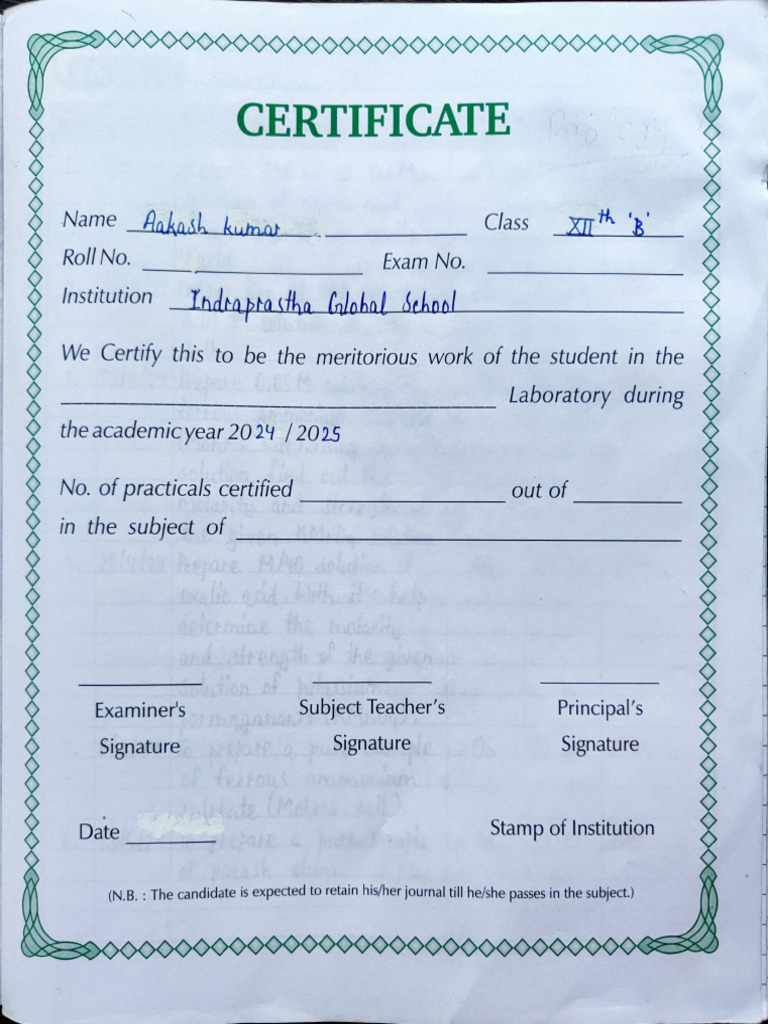 CERTIFICATE
Name Aakash kumar Class XIIth 'B'
Roll No. Exam No.
Institution Indraprastha Global School
We Certify this to be the meritorious work of the student in the
Laboratory during
the academic year 2024 / 2025
No. of practicals certified out of
in the subject of
Examiner's Signature
Subject Teacher's Signature
Principal's Signature
Date Stamp of Institution
(N.B. : The candidate is expected to retain his/her journal till he/she passes in the subject.)